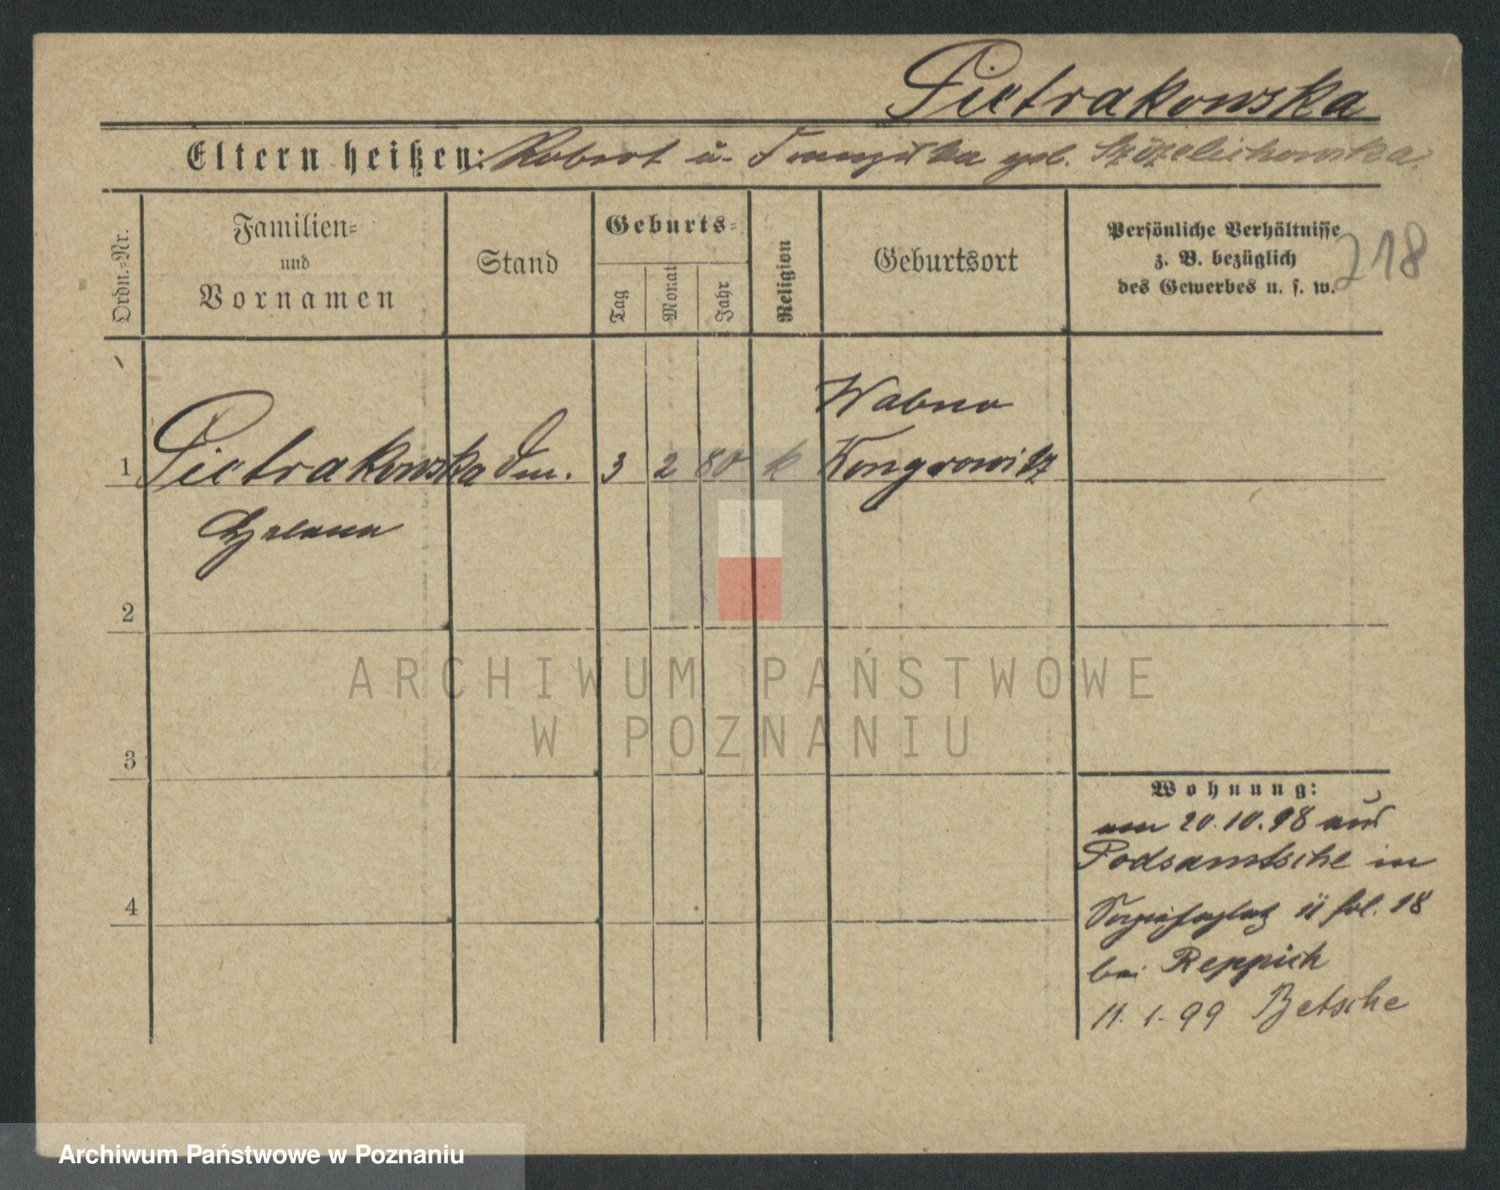 Pietrakowska
Eltern heißen: Robert u. Franziska geb.
Ordn.-Nr.
Familien-
und
Vornamen
Stand
Geburts-
Tag
Monat
Jahr
Religion
Geburtsort
Persönliche Verhältnisse
z. B. bezüglich
des Gewerbes u. s. w.
218
Wabno
1 Pietrakowska 3 2 80 k
Helena
2
ARCHIWUM PAŃSTWOWE
W POZNANIU
3
4
Wohnung:
am 20.10.98 aus
Podsamtsche in
18
bei Reppich
11. 1. 99 Betsche
Archiwum Państwowe w Poznaniu